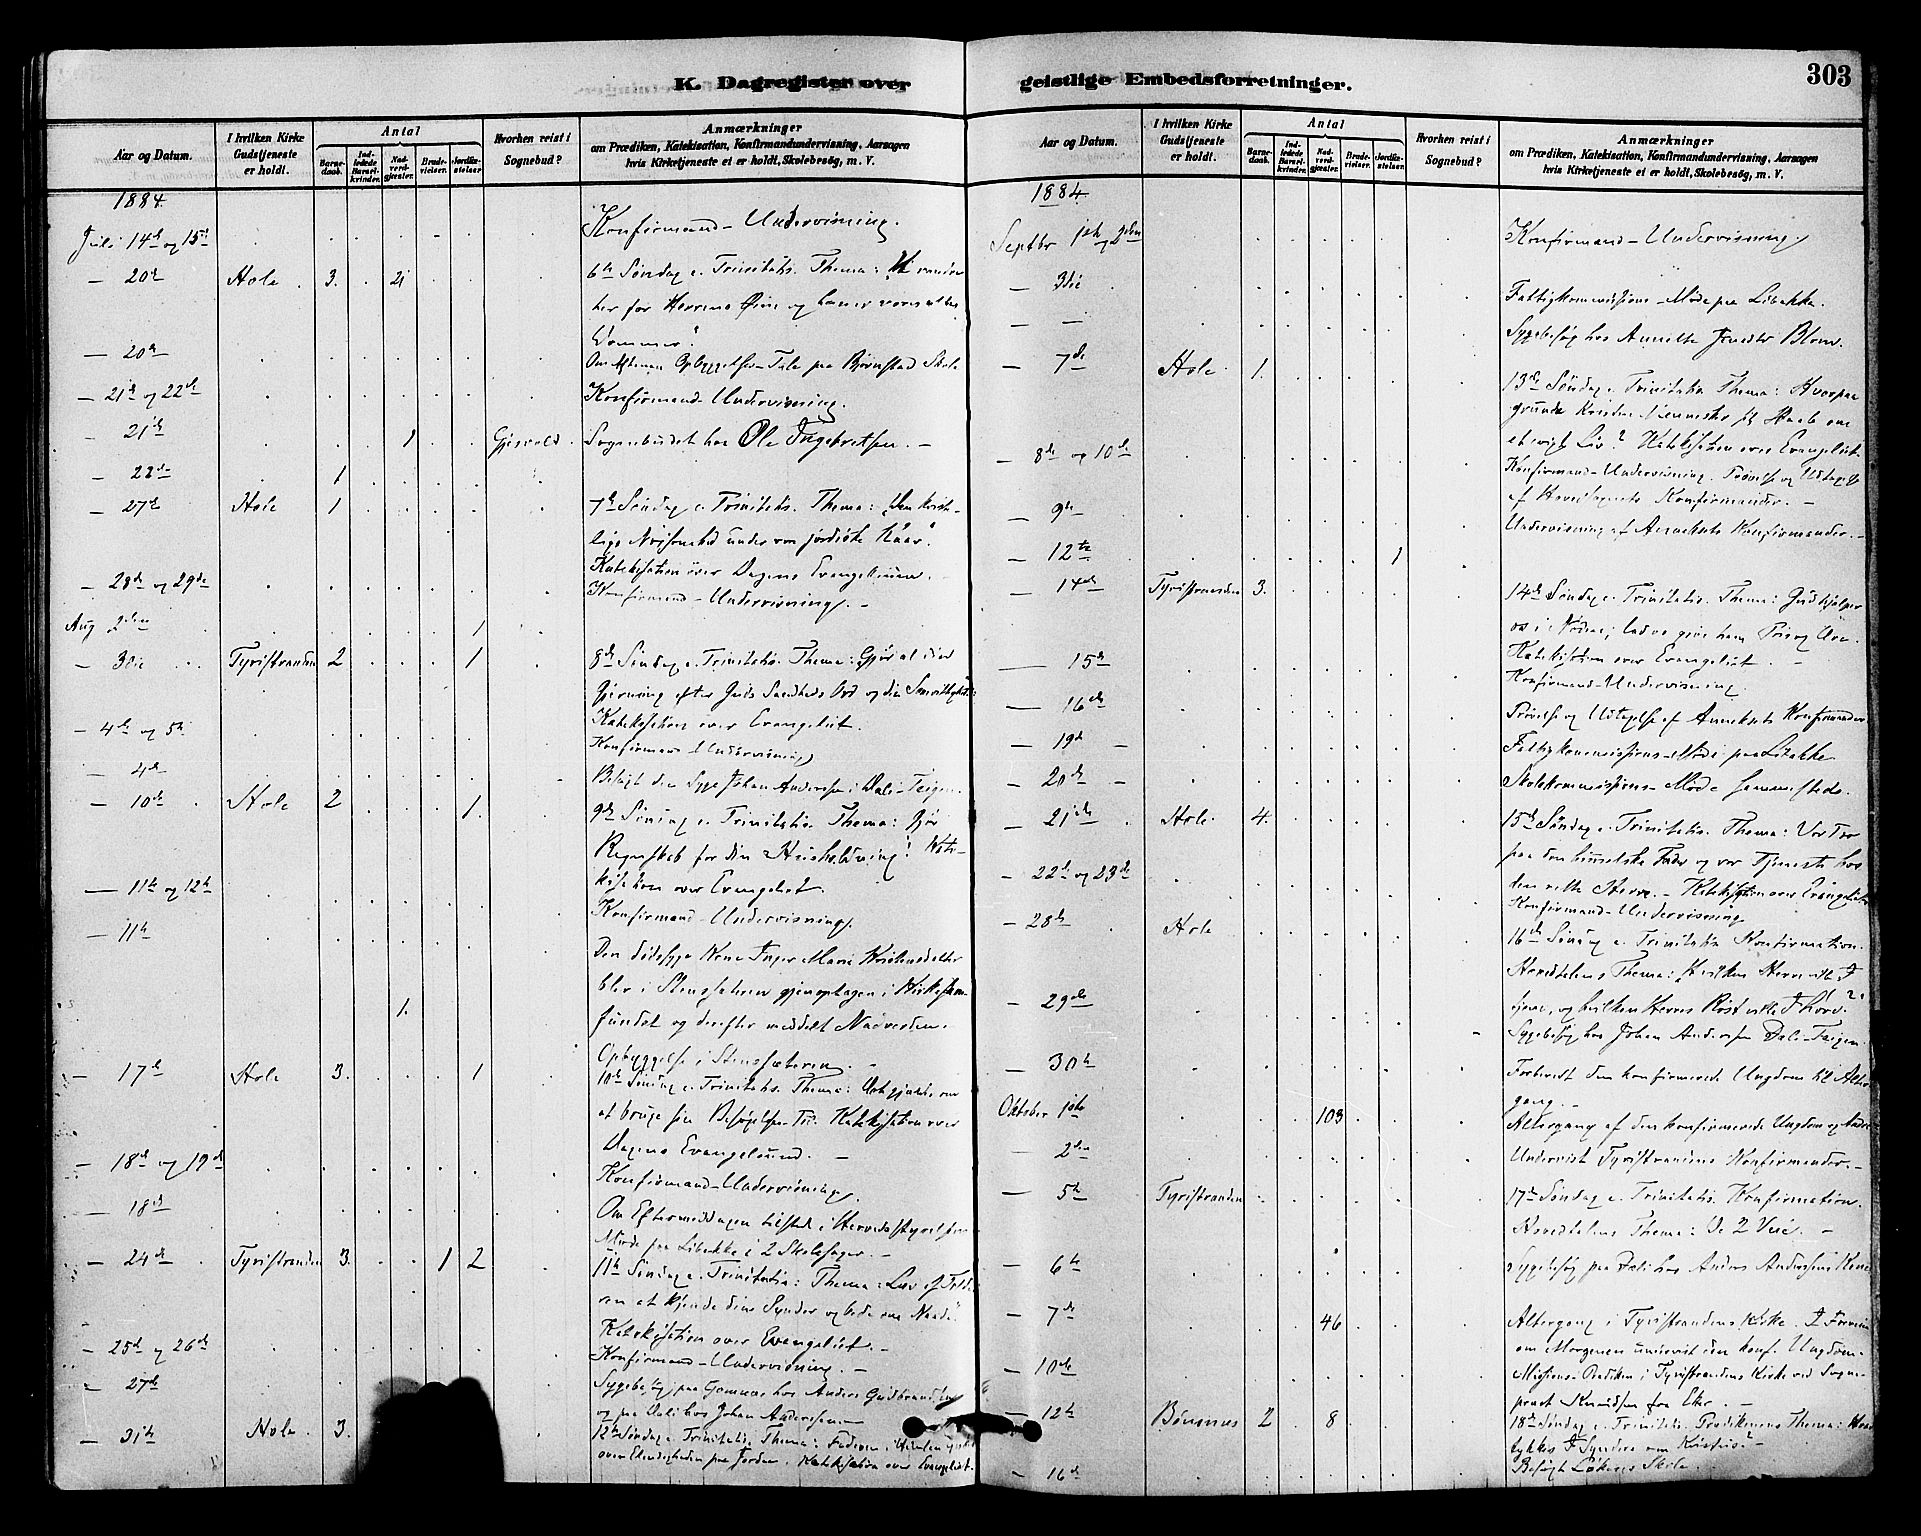 K. Dagregister over
Aar og Datum.
I hvilken Kirke Gudstjeneste er holdt.
Antal
Barnedaab.
Indledede Barselkvinder.
Nadverdgjæster.
Brudevielser.
Jordfæstelser.
Hvorhen reist i Sognebud?
Anmærkninger
om Prædiken, Katekisation, Konfirmandundervisning, Aarsagen
hvis Kirketjeneste ei er holdt, Skolebesøg, m. V.
1884.
Juli 14de og 15de Konfirmand-Undervisning.
— 20de Hole 3. 21 6te Søndag e. Trinitatis. Thema:
for Herrens Øine og
Dommer.
— 20de Om Aftenen Opbyggelses-Tale paa Bjørnstad Skole
— 21de og 22de Konfirmand-Undervisning.
— 21de 1 Gjesvold. Sognebudet hos Ole Ingebretsen. —
— 22de 1
— 27de Hole 1 7de Søndag e. Trinitatis. Thema: "Den krist-
lige Nøisomhed under vor jordiske Kaar".
Katekisation over Dagens Evangelium.
— 28de og 29de Konfirmand-Undervisning. —
Aug 2den 1
— 3die Tyristranden 2 1 8de Søndag e. Trinitatis. Thema: Gjør al din
Gjerning efter Guds Ord og din
Katekisation over Evangeliet.
— 4de og 5te Konfirmand-Undervisning
— 4de Besøgt den Syge Johan Andersen i Dali-Teigen.
— 10de Hole 2 1. 9de Søndag e. Trinitatis. Thema: Gjør
Regnskab for din Husholdning! Kate-
kisation over Evangeliet.
— 11te og 12te Konfirmand-Undervisning.
— 11te Den dødssyge Kone Inger Marie
blev i Stensæteren gjenoptagen i Kirkesam-
1. fundet og derefter meddelt Nadverden.
Opbyggelse i Stensæteren. —
— 17de Hole 3. 1 10de Søndag e. Trinitatis. Thema: om
at bruge sin Besøgelses Tid. Katekisation over
Dagens Evangelium. —
— 18de og 19de Konfirmand-Undervisning.
— 18de Om Eftermiddagen tilstede i Herredsstyrets
Møde paa Libakke i 2 Skolesager. —
— 24de Tyristranden 3. 1 2 11te Søndag e. Trinitatis: Thema: Lær af Tolde-
ren at kjende dine Synder og bede om Naade"
Katekisation over Evangeliet. —
— 25de og 26de Konfirmand-Undervisning. —
— 27de Sygebesøg paa Gomnes hos Anders Gudbrandsen
og paa Dali hos Johan Andersen
— 31te Hole. 3. 12te Søndag e. Trinitatis. Thema: Faderen i Himlen
over Elendigheden paa Jorden. Katekisation over Evangeliet.
geistlige Embedsforretninger.
303
Aar og Datum.
I hvilken Kirke Gudstjeneste er holdt.
Antal
Barnedaab.
Indledede Barselkvinder.
Nadverdgjæster.
Brudevielser.
Jordfæstelser.
Hvorhen reist i Sognebud?
Anmærkninger
om Prædiken, Katekisation, Konfirmandundervisning, Aarsagen
hvis Kirketjeneste ei er holdt, Skolebesøg, m. V.
1884.
Septbr 1ste og 2den Konfirmand-Undervisning.
— 3die Fattigkommissions-Møde paa Libakke.
— — Sygebesøg hos Blom.
— 7de Hole. 1. 13de Søndag e. Trinitatis Thema: Hvorpaa
grunder Kristne Mennesker sit Haab om
et evigt Liv? Katekisation over Evangeliet
— 8de og 10de Konfirmand-Undervisning. Prøvelse og Udtagelse
af Hovedsognets Konfirmander. —
— 9de Undervisning af Anneksets Konfirmander. —
— 12te 1
— 14de Tyristranden 3. 14de Søndag e. Trinitatis. Thema: Gud hjælper
os i Nøden; lad os give ham Pris og Ære.
Katekisation over Evangeliet. —
— 15de Konfirmand-Undervisning.
— 16de Prøvelse og Udtagelse af Anneksets Konfirmander
— 19de Fattigkommissions-Møde paa Libakke
— 20de — Skolekommissions-Møde sammesteds.
— 21de Hole. 4. 15de Søndag e. Trinitatis. Thema: Vor Tro
paa den himmelske Fader og vor Tjeneste hos
den rette Herre. — Katekisation over Evangeliet
— 22de og 23de Konfirmand-Undervisning
— 28de Hole 16de Søndag e. Trinitatis Konfirmation.
Thema: Hvilken Herre vil I
tjene, og hvilken Herres Røst vil I høre?
— 29de Sygebesøg hos Johan Andersen Dali-Teigen.
— 30te Forberedt den konfirmerede Ungdom til Alter-
gang. —
Oktober 1ste 103 Altergang af den konfirmerede Ungdom og Andre
— 2den Undervist Tyristrandens Konfirmander. —
— 5te Tyristranden 17de Søndag e. Trinitatis. Konfirmation.
Thema: De 2 Veie. —
— 6te Sygebesøg paa hos Anders Andersens Kone
— 7de 46 Altergang i Tyristrandens Kirke.
om Morgenen undervist den konf. Ungdom.
— 10de Missions-Prædiken i Tyristrandens Kirke ved Sogne-
præst Knudsen fra Eker. —
— 12te Bønsnes 2 8 18de Søndag e. Trinitatis. Prædikenens Thema: Hvad
tykkes I Syndere om Kristus?
— 16de Besøgt Løkens Skole.